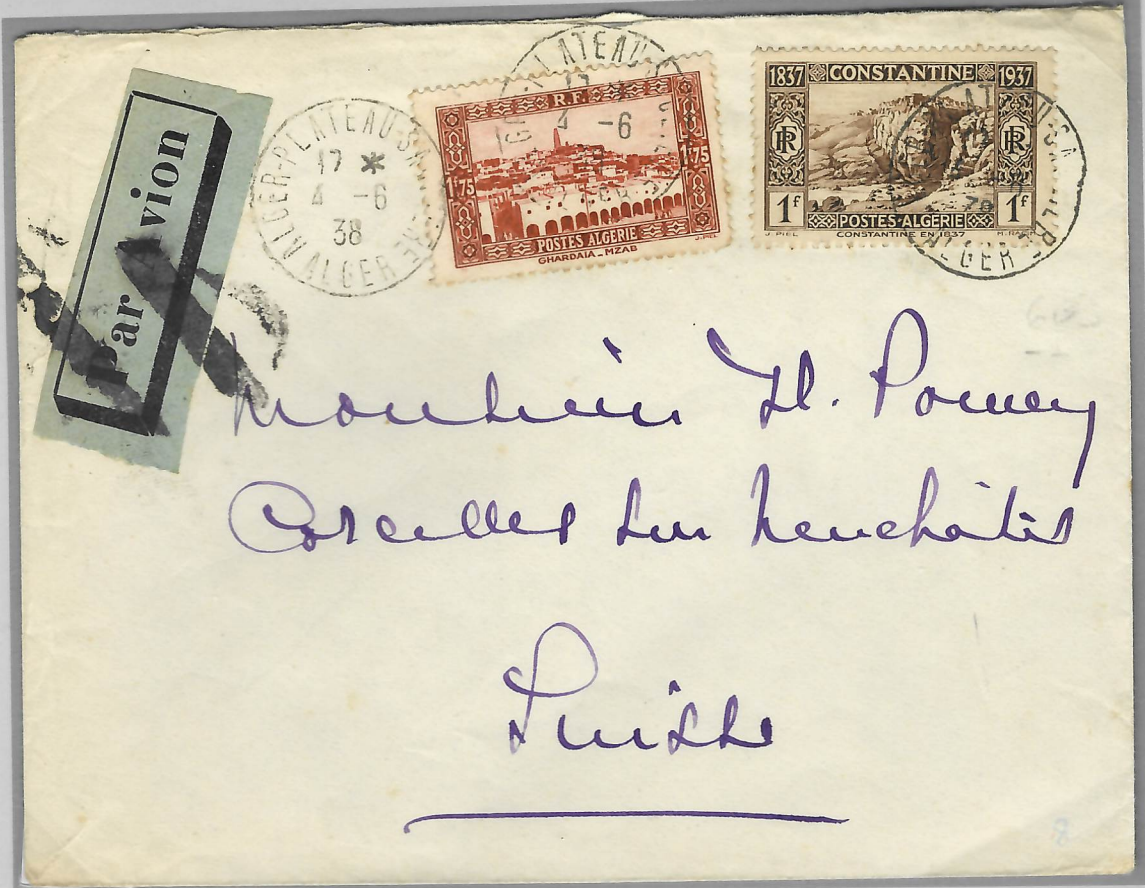 Par avion
ALGER-PLATEAU-SAULIÈRE
17 *
4 -6
38
ALGER
R.F.
1F75 1F75
POSTES ALGÉRIE
GHARDAIA - MZAB
J. PIEL
PLATEAU-S
17
4 -6
1837 CONSTANTINE 1937
RF RF
1F POSTES-ALGÉRIE 1F
J. PIEL CONSTANTINE EN 1837
ALGER
Monsieur H. Pomey
Corcelles sur Neuchâtel
Suisse
8